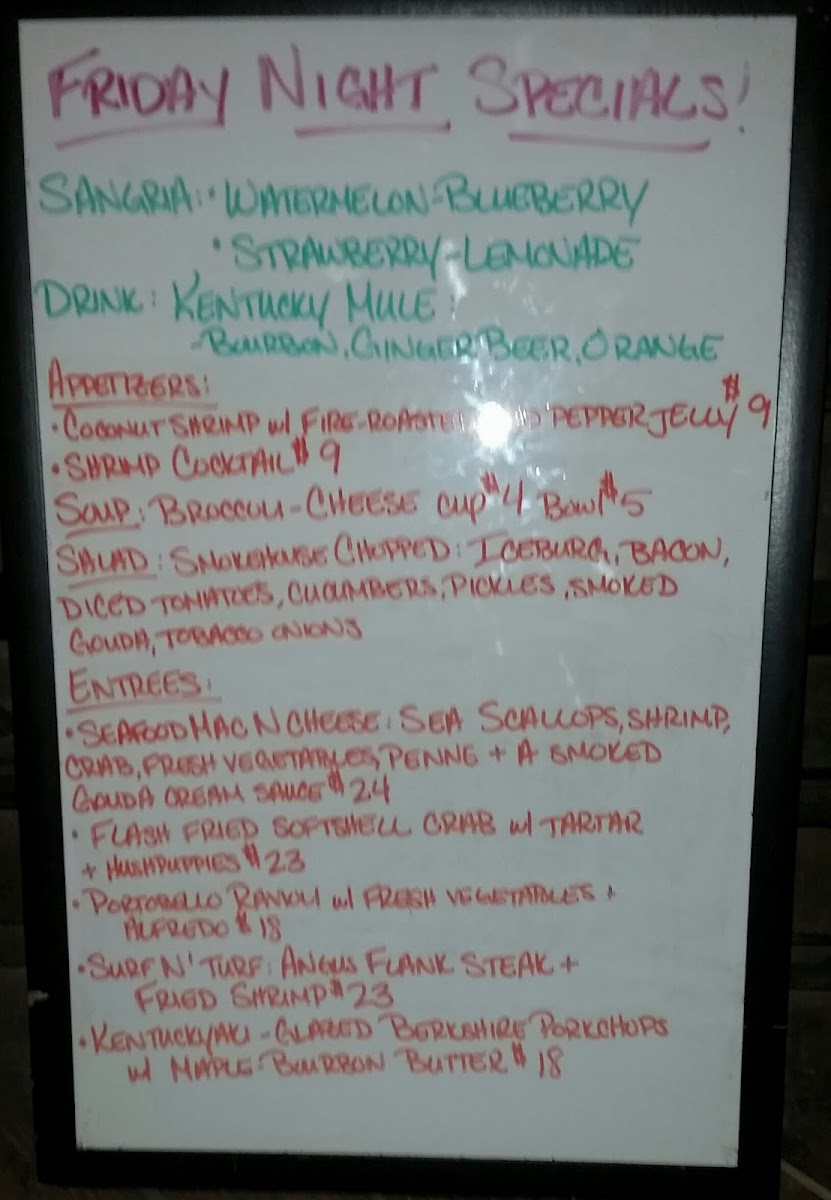 FRIDAY NIGHT SPECIALS!
SANGRIA: • WATERMELON-BLUEBERRY
• STRAWBERRY-LEMONADE
DRINK: KENTUCKY MULE:
-BOURBON, GINGER BEER, ORANGE
APPETIZERS:
• COCONUT SHRIMP w/ FIRE-ROASTED PEPPER JELLY $9
• SHRIMP COCKTAIL $9
SOUP: BROCCOLI-CHEESE CUP $4 BOWL $5
SALAD: SMOKEHOUSE CHOPPED: ICEBURG, BACON,
DICED TOMATOES, CUCUMBERS, PICKLES, SMOKED
GOUDA, TOBACCO ONIONS
ENTREES:
• SEAFOOD MAC N CHEESE: SEA SCALLOPS, SHRIMP,
CRAB, FRESH VEGETABLES, PENNE + A SMOKED
GOUDA CREAM SAUCE $24
• FLASH FRIED SOFTSHELL CRAB w/ TARTAR
+ HUSHPUPPIES $23
• PORTOBELLO RAVIOLI w/ FRESH VEGETABLES +
ALFREDO $18
• SURF N' TURF: ANGUS FLANK STEAK +
FRIED SHRIMP $23
• KENTUCKYAKI-GLAZED BERKSHIRE PORKCHOPS
w/ MAPLE-BOURBON BUTTER $18